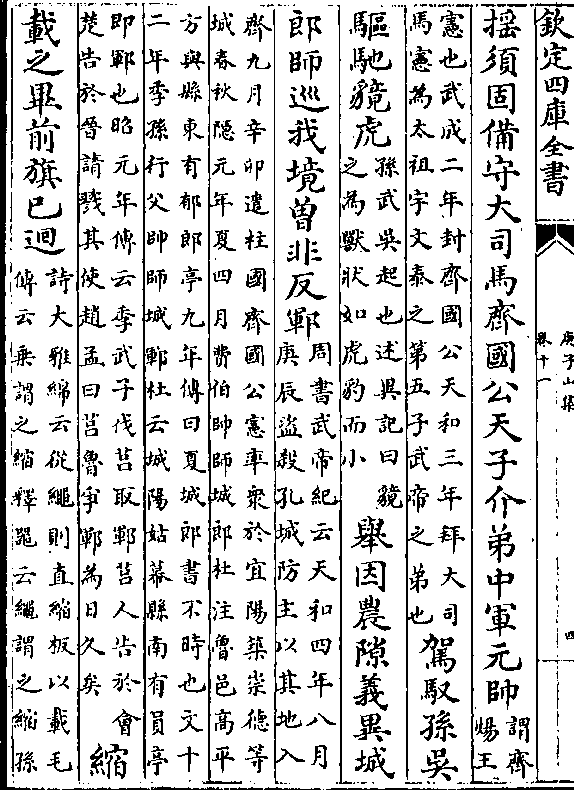 欽定四庫全書
庾子山集
卷十一
四
揺須固備守大司馬齊國公天子介弟中軍元帥
謂齊
煬王
憲也武成二年封齊國公天和三年拜大司
馬憲為太祖宇文泰之第五子武帝之弟也
駕馭孫吳
驅馳獍虎
孫武吳起也述異記曰獍
之為獸狀如虎豹而小
舉因農隙義異城
郎師巡我境曽非反鄆
周書武帝紀云天和四年八月
庚辰盜殺孔城防主以其地入
齊九月辛卯遣柱國齊國公憲率衆於宜陽築崇德等
城春秋隱元年夏四月費伯帥師城郎杜注魯邑高平
方與縣東有郁郎亭九年傳曰夏城郎書不時也文十
二年季孫行父帥師城鄆杜云城陽姑幕縣南有員亭
即鄆也昭元年傳云季武子伐莒取鄆莒人告於會
楚告於晉請戮其使趙孟曰莒魯爭鄆為日久矣
縮
載之畢前旗已迴
詩大雅綿云從繩則直縮板以載毛
傳云乗謂之縮釋器云繩謂之縮孫